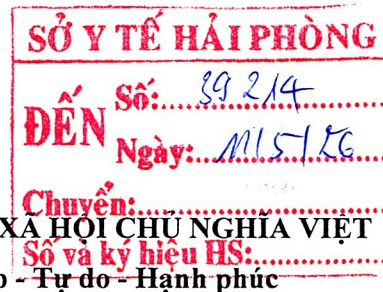 SỞ Y TẾ HẢI PHÒNG
ĐẾN
Số: 39214
Ngày: 11/5/26
Chuyển:
XÃ HỘI CHỦ NGHĨA VIỆT
Số và ký hiệu HS:
- Tự do - Hạnh phúc